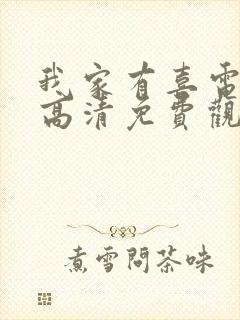 我家有喜電
高清免費觀
煮雪問茶味